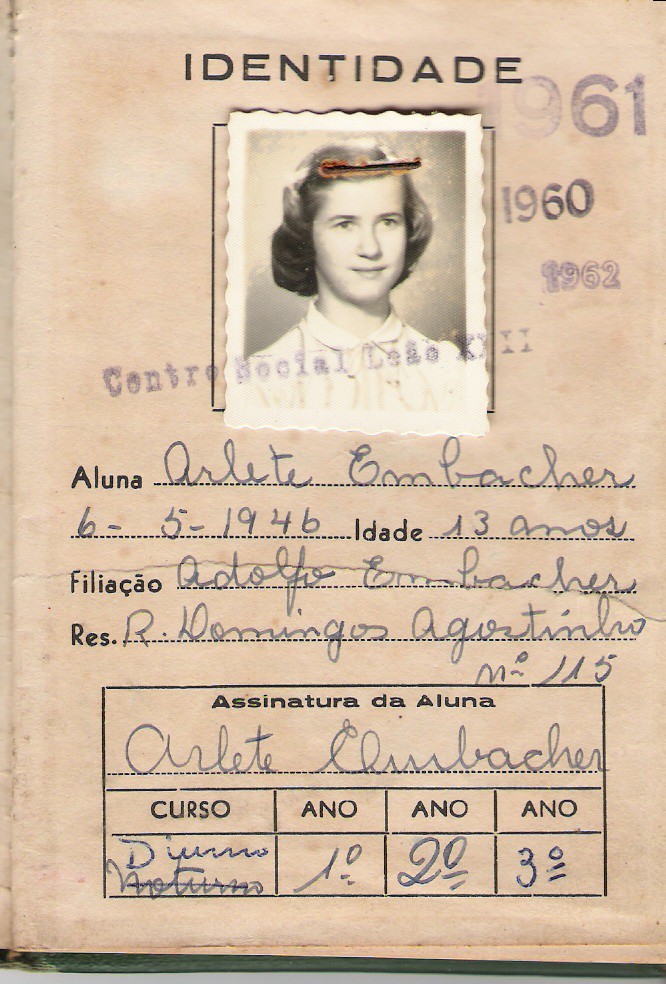 IDENTIDADE
1961
1960
1962
Centro Social Leão XIII
Aluna Arlete Embacher
6- 5-1946 Idade 13 anos
Filiação Adolfo Embacher
Res. R. Domingos Agostinho
nº 115
Assinatura da Aluna
Arlete Embacher
CURSO ANO ANO ANO
Diurno 1º 2º 3º
Noturno